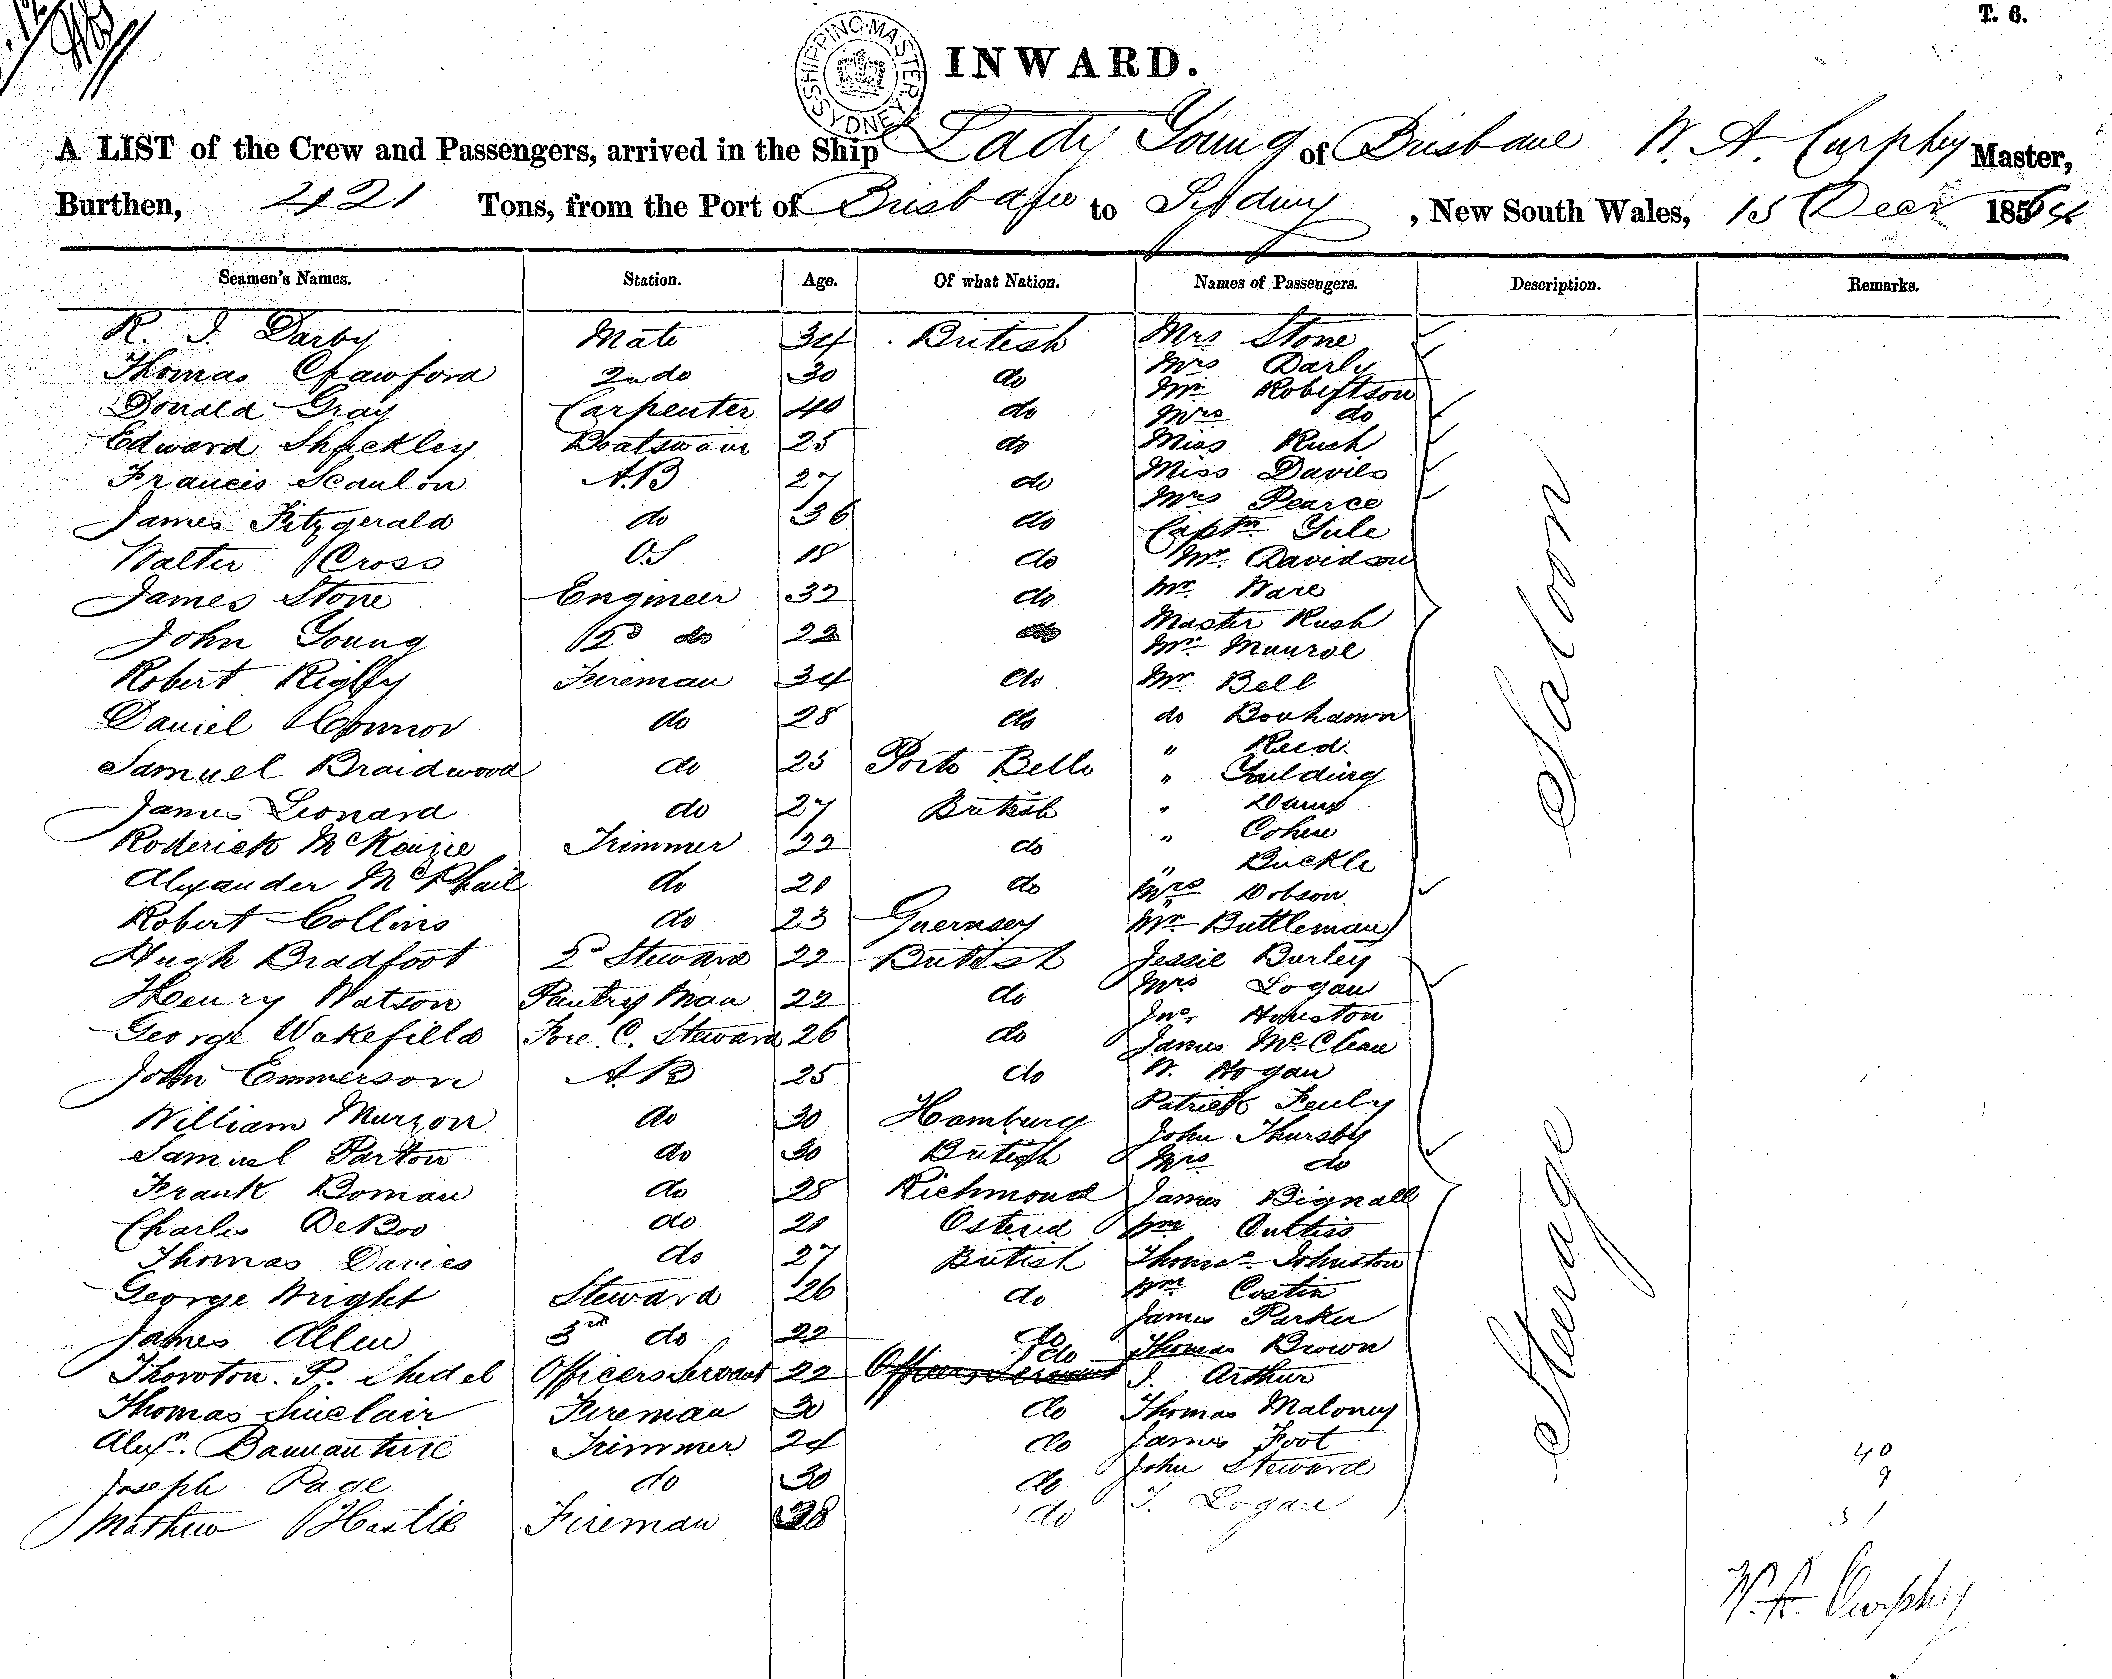 T. 6.
SHIPPING MASTER SYDNEY
INWARD.
A LIST of the Crew and Passengers, arrived in the Ship Lady Young of Brisbane W. A. Curphey Master,
Burthen, 421 Tons, from the Port of Brisbane to Sydney, New South Wales, 15 Decr 1864
Seamen's Names. Station. Age. Of what Nation. Names of Passengers. Description. Remarks.
R. J. Darby Mate 34 British Mrs Stone
Thomas Crawford 2nd do 30 do Mrs Darly
Mr Robertson
Donald Gray Carpenter 40 do Mrs do
Edward Shackley Boatswain 25 do Miss Rush
Francis Scanlon A.B 27 do Miss Davies
Mrs Pearce
James Fitzgerald do 36 do Captn Yule
Walter Cross O.S 18 do Mr. Davidson
James Stone Engineer 32 do Mr. Ware
Master Rush
John Young 2d do 22 do Mr. Munroe
Robert Rigby Fireman 34 do Mr. Bell
Daniel Connor do 28 do do Bonhamn
" Reed
Samuel Braidwood do 25 Porto Bello "
James Leonard do 27 British "
Roderick McKenzie Trimmer 22 do " Cohen
" Buckle
Alexander McPhail do 21 do Mrs Dobson
Robert Collins do 23 Guernsey Mr Buttleman
Hugh Bradfoot 2d Steward 22 British Jessie Burley
Mrs Logan
Henry Watson Pantry Man 22 do Jno. Houston
George Wakefield Fore. C. Steward 26 do James McClean
John Emmerson A B 25 do W. Hogan
William Murzon do 30 Hamburg Patrick Fenly
John Thursby
Samuel Parton do 30 British Mrs do
Frank Boman do 28 Richmond James Bignall
Charles DeBoo do 21 Ostend Wm Curtiss
Thomas Davies do 27 British Thomas Johnston
George Wright Steward 26 do Wm Costin
James Parker
James Allen 3rd do 22 do Thomas Brown
Thornton. P. Officers Servant 22 Officers Servant do J. Arthur
Thomas Sinclair Fireman 30 do Thomas Maloney
Alexr. Bannantine Trimmer 24 do James Foot
John Steward
Joseph Page do 30 do T. Logan
Mathew Hastie Fireman 28 do
Saloon
Steerage
40
9
31
W. A. Curphey